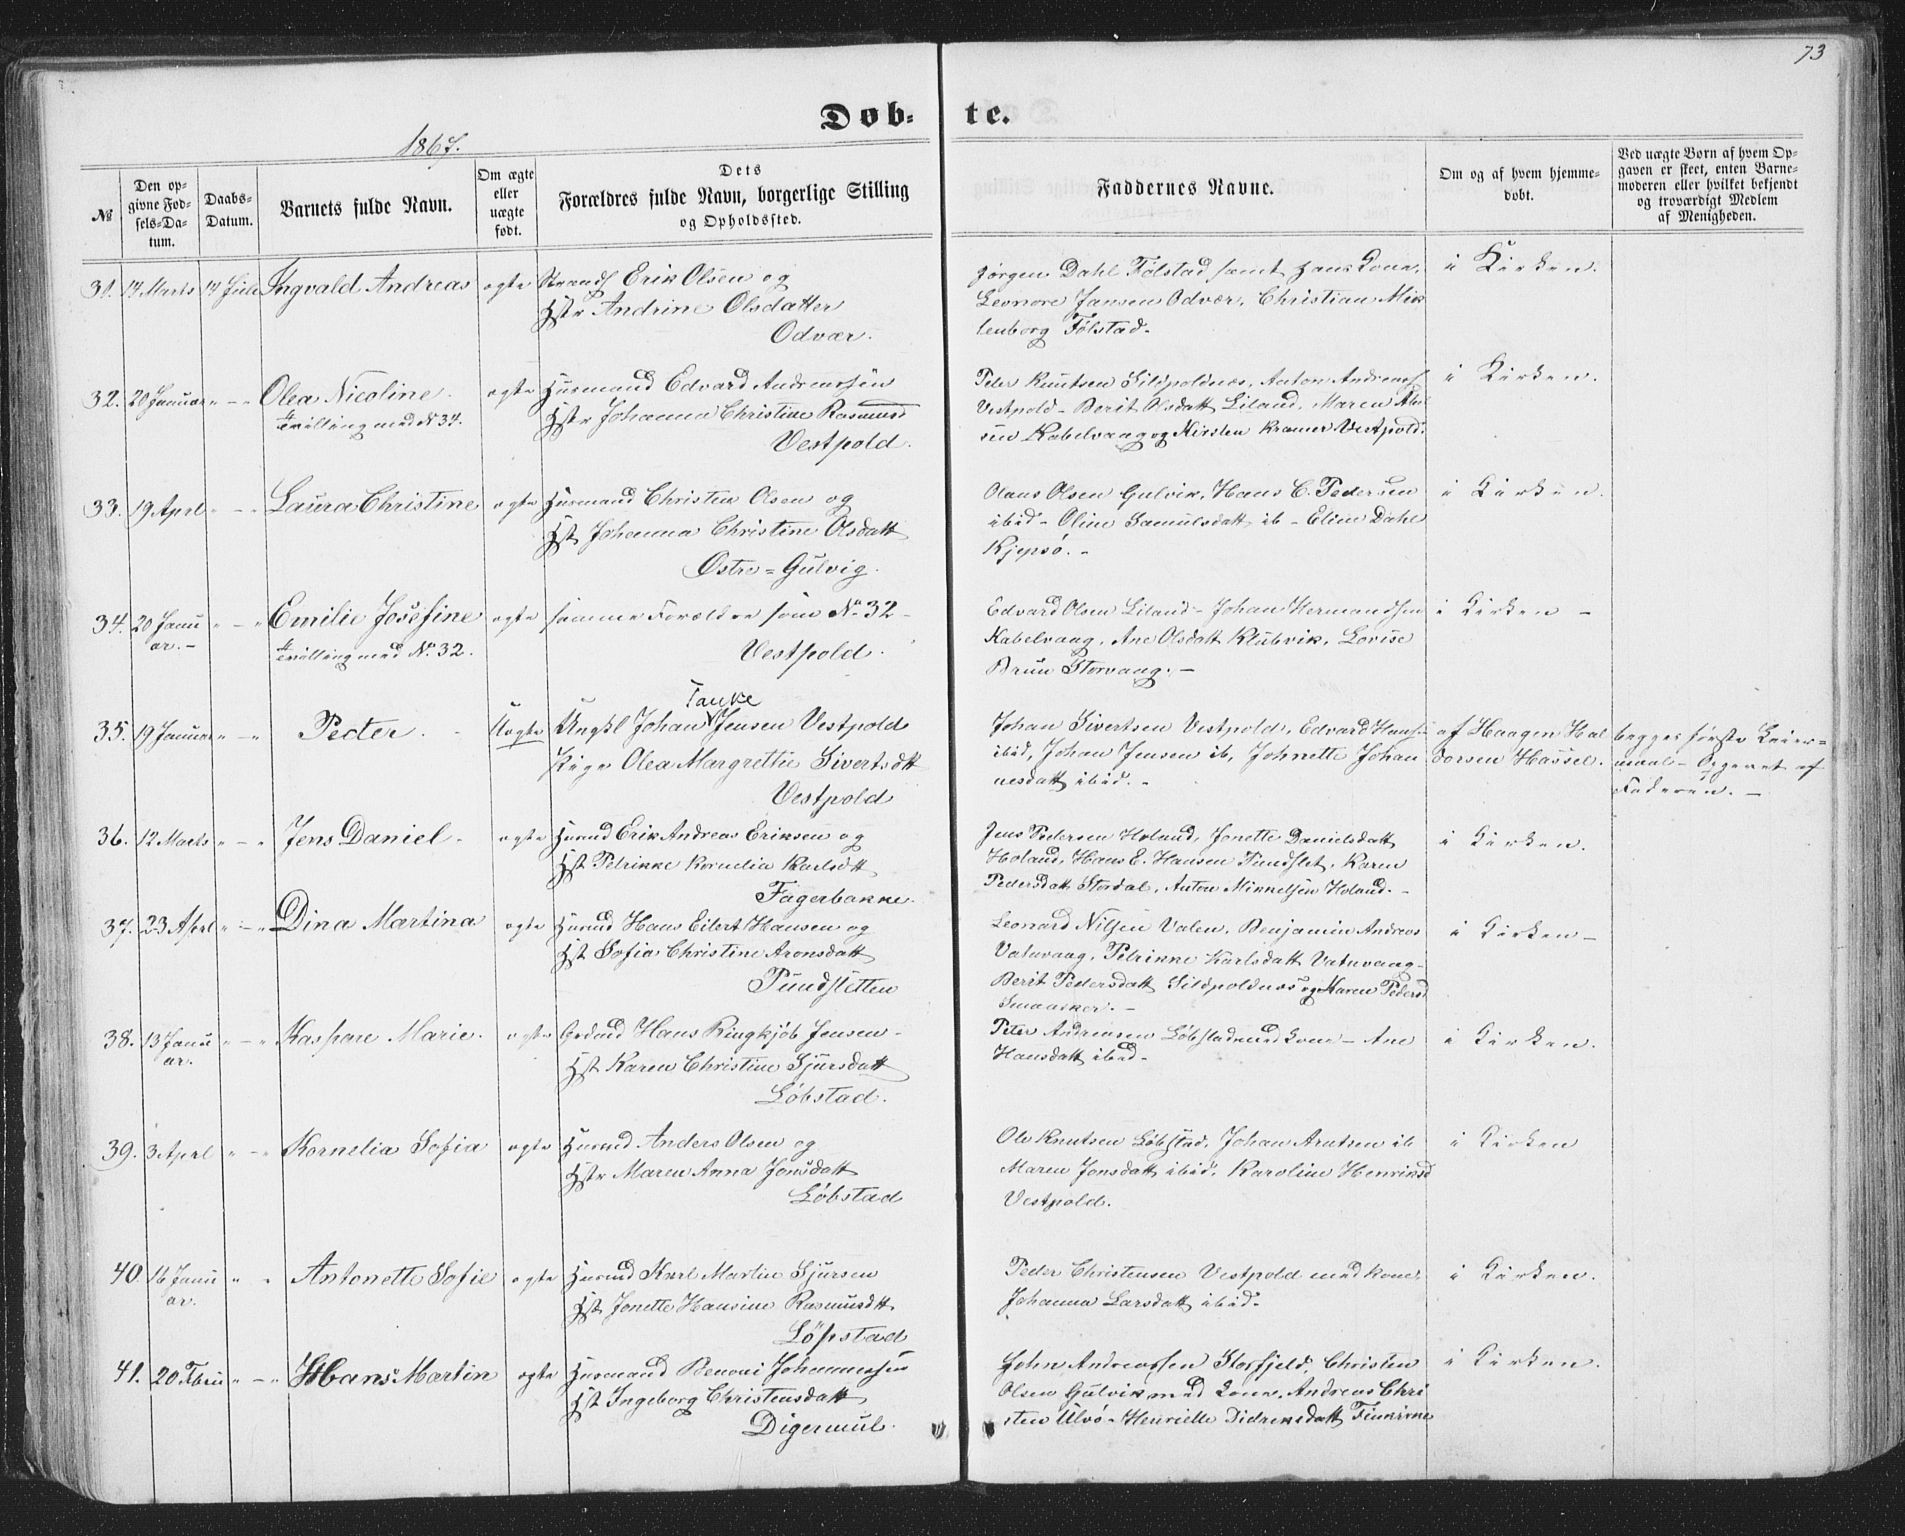 73
Døb-te.
1867.
№
Den op-
givne Fød-
sels-Da-
tum.
Daabs-
Datum.
Barnets fulde Navn.
Om ægte
eller
uægte
født.
Dets
Forældres fulde Navn, borgerlige Stilling
og Opholdssted.
Faddernes Navne.
Om og af hvem hjemme-
døbt.
Ved uægte Børn af hvem Op-
gaven er skeet, enten Barne-
moderen eller hvilket bekjendt
og troværdigt Medlem
af Menigheden.
31. 14 Marts 14 Juli Ingvald Andreas ægte Strands Erik Olsen og
Hstr Andrine Olsdatter
Odvær.
Jørgen Dahl Følstad samt Hans Kone,
Leonore Jansen Odvær, Christian Mek
lenborg Følstad.
i Kirken.
32. 20 Januar " - " Olea Nicoline. ægte Husmand Edvard Andreassen
Tvilling med N 34. Hstr Johanna Christine Rasmusd
Vestpold.
Peder Knutsen Sildpoldnes, Anton Andreass
Vestpold - Berit Olsdatt Liland, Maren Abel
sen Kabelvaag og Kirsten Kramer Vestpold.
i Kirken.
33. 19 Aprl " - " Laura Christine ægte Husmand Christen Olsen og
Hst Johanna Christine Olsdatt
Østre-Gulvig.
Olaus Olsen Gulvik, Hans C. Pedersen
ibid - Oline Samulsdatt ib - Eline Dahl
Kjepsø. -
i Kirken.
34. 20 Janu " - " Emilie Josefine ægte samme Forældre som No 32 -
ar. - Tvilling med No 32. Vestpold.
Edvard Olsen Liland - Johan Hermandsen
Kabelvaag, Ane Olsdatt Klubvik, Lovise
Brun Storvaag. -
i Kirken -
Tanke
35. 19 Januar " - " Peder. Uægte Ungkl Johan Jensen Vestpold
Pige Olea Margrethe Sivertsdtt
Vestpold
Johan Sivertsen Vestpold, Edvard Hansen
ibid, Johan Jensen ib, Johnette Johan
nesdatt ibid. -
af Haagen Hal
dorsen Hassel.
begges første Leier-
maal - Opgevet af
Faderen. -
36. 12 Marts " - " Jens Daniel. ægte Husmd Erik Andreas Eriksen og
Hst Petrikke Kornelia Karlsdtt
Fagerbakke.
Jens Pedersen Holand, Jonette Danielsdatt
Holand, Hans E. Hansen Pundslet, Karen
Pedersdatt Stordal, Anton Mikkelsen Holand. -
i Kirken.
37. 23 Aprl " - " Dina Martina ægte Husmd Hans Eilert Hansen og
Hst Sofia Christine Aronsdatt
Pundsletten
Leonard Nilsen Valen, Benjamin Andreas
Vatnvaag, Petrikke Karlsdatt Vatnvaag -
Berit Pedersdatt Sildpoldnes og Karen Pedersd
Smaasker. -
i Kirken -
38. 13 Janu " - " Kaspare Marie. ægte Grdmd Hans Ringkjøb Jensen -
ar. Hst Karen Christine Sjursdatt
Løbstad.
Peter Andreasen Løbstad med Kone - Ane
Hansdatt ibid -
i Kirken.
39. 3 Aprl " - " Kornelia Sofia ægte Husmd Anders Olsen og
Hstr Maren Anna Jonsdatt
Løbstad
Ole Knutsen Løbstad, Johan Arntsen ib
Maren Jonsdatt ibid. Karoline Henriksd
Vestpold.
i Kirken
40. 16 Janu " " Antonette Sofie ægte Husmd Karl Martin Sjursen
ar. Hst Jonette Hansine Rasmusdtt
Løpstad
Peder Christensen Vestpold med Kone,
Johanna Larsdatt ibid -
i Kirken.
41. 20 Fbru " - " Hans Martin ægte Husmand Benoni Johannessen
Hst Ingeborg Christensdatt
Digermul.
John Andreassen Storfjeld, Christen
Olsen Gulvik med Kone, Andreas Chri
sten Ulvø - Henriette Didriksdatt Finkirke
i Kirken.